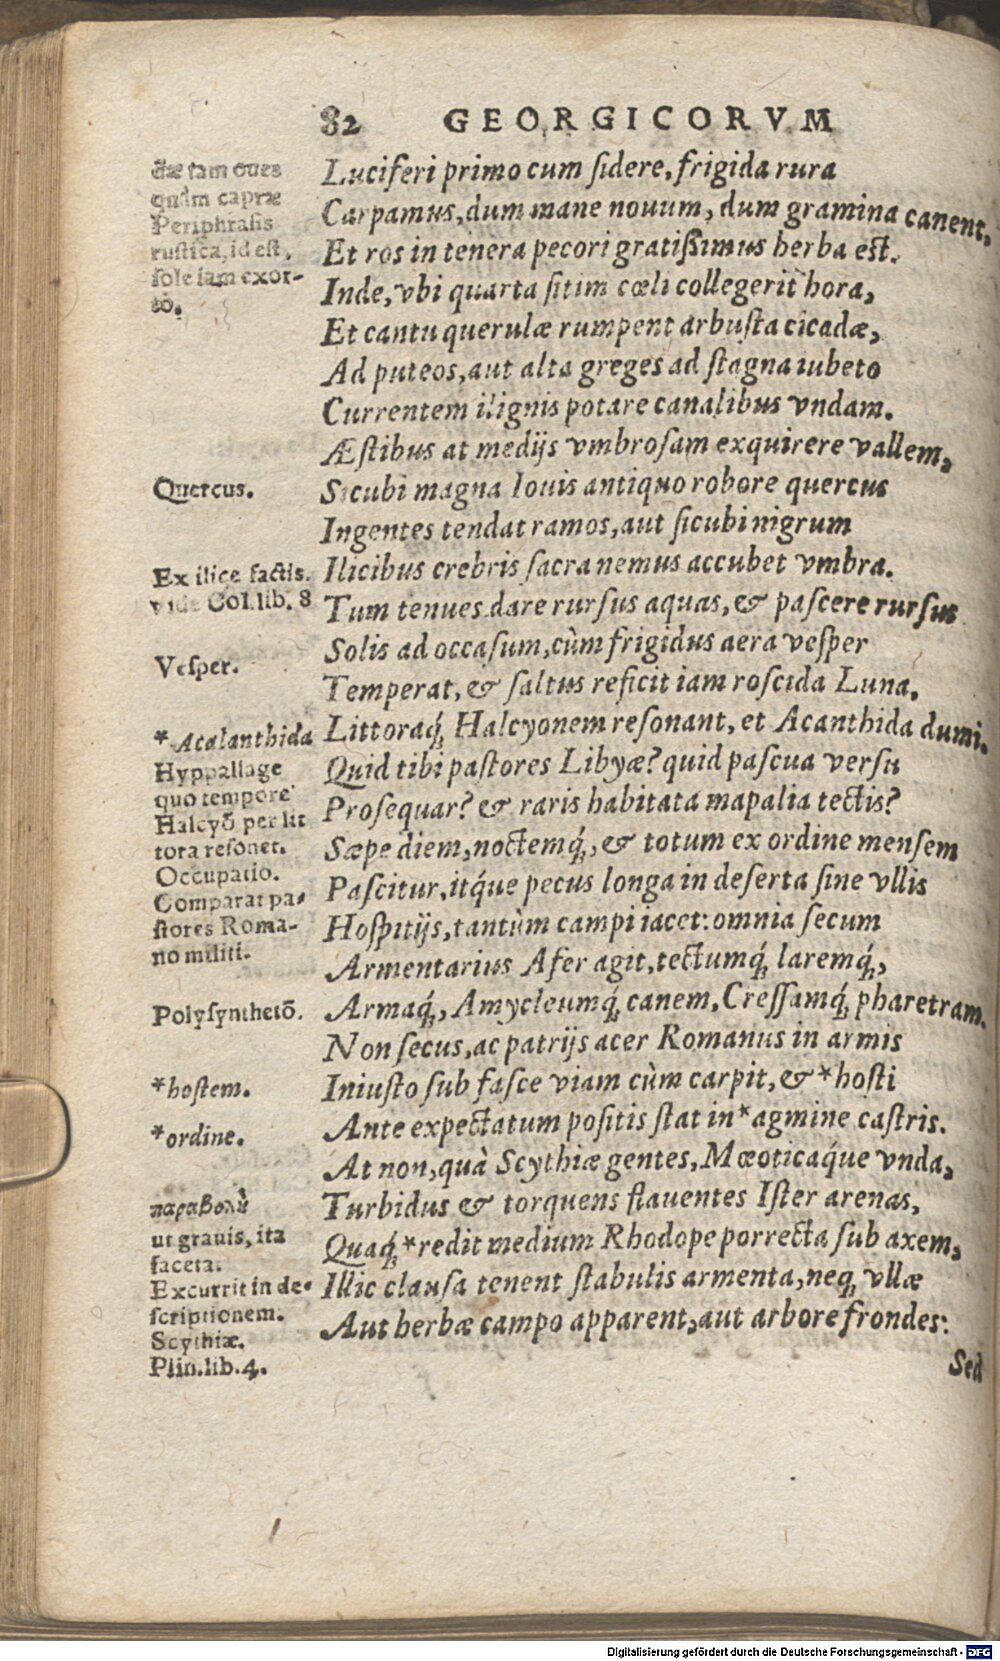 82 GEORGICORVM
dæ tam oues
quàm capræ
Periphrasis
rustica, id est,
sole iam exor-
to.
Luciferi primo cum sidere, frigida rura
Carpamus, dum mane nouum, dum gramina canent,
Et ros in tenera pecori gratißimus herba est.
Inde, vbi quarta sitim cœli collegerit hora,
Et cantu querulæ rumpent arbusta cicadæ,
Ad puteos, aut alta greges ad stagna iubeto
Currentem ilignis potare canalibus vndam.
Æstibus at medijs vmbrosam exquirere vallem,
Quercus.
Sicubi magna Iouis antiquo robore quercus
Ingentes tendat ramos, aut sicubi nigrum
Ex ilice factis.
vide Col. lib. 8
Ilicibus crebris sacra nemus accubet vmbra.
Tum tenues dare rursus aquas, & pascere rursus
Vesper.
Solis ad occasum, cùm frigidus aera vesper
Temperat, & saltus reficit iam roscida Luna,
*Acalanthida
Littoraq́; Halcyonem resonant, et Acanthida dumi.
Hyppallage
quo tempore
Halcyõ per lit
tora resonet.
Occupatio.
Comparat pa-
stores Roma-
no militi.
Quid tibi pastores Libyæ? quid pascua versu
Prosequar? & raris habitata mapalia tectis?
Sæpe diem, noctemq́;, & totum ex ordine mensem
Pascitur, itq́ue pecus longa in deserta sine vllis
Hospitijs, tantùm campi iacet: omnia secum
Armentarius Afer agit, tectumq́; laremq́;,
Polysynthetõ.
Armaq́;, Amycleumq́; canem, Cressamq́; pharetram.
Non secus, ac patrijs acer Romanus in armis
*hostem.
Iniusto sub fasce viam cùm carpit, & *hosti
*ordine.
Ante expectatum positis stat in *agmine castris.
At non, quà Scythiæ gentes, Mœoticaq́ue vnda,
παραβολὴ
ut grauis, ita
faceta.
Excurrit in de-
scriptionem.
Scythiæ.
Plin. lib. 4.
Turbidus & torquens flauentes Ister arenas,
Quaq́; *redit medium Rhodope porrecta sub axem,
Illic clausa tenent stabulis armenta, neq; vllæ
Aut herbæ campo apparent, aut arbore frondes:
Sed
Digitalisierung gefördert durch die Deutsche Forschungsgemeinschaft - DFG